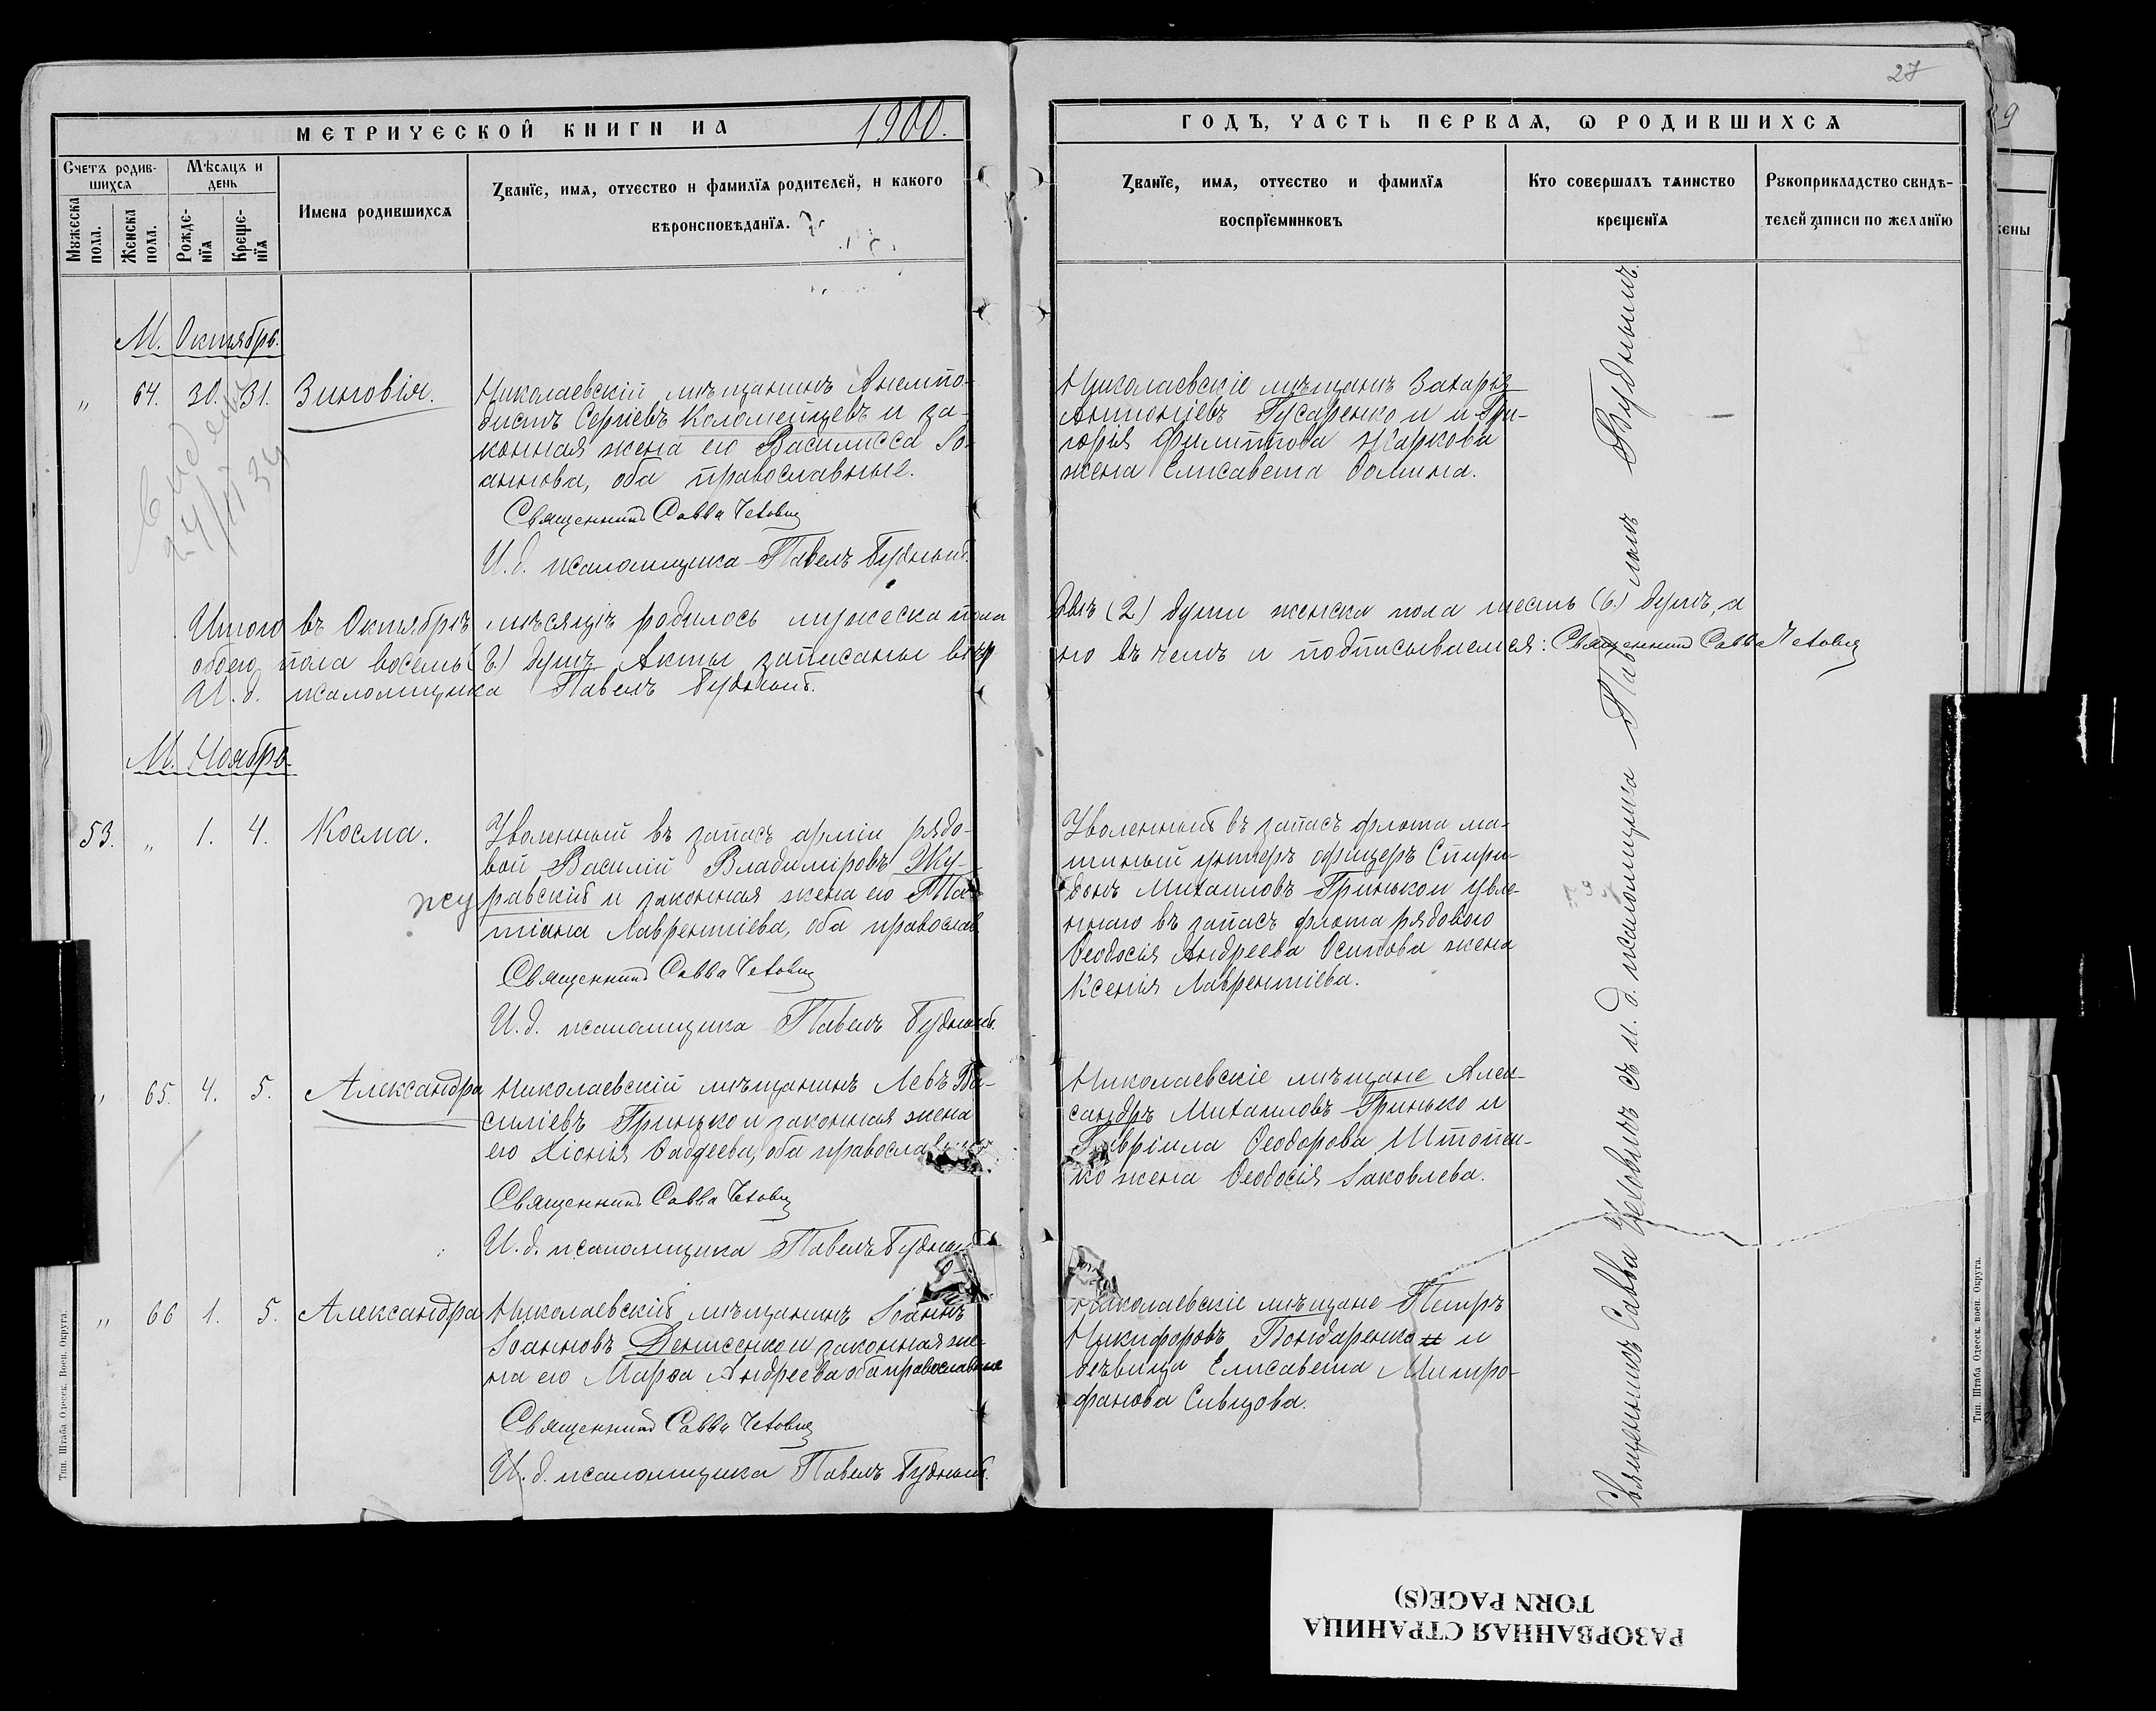 27
МЕТРИЧЕСКОЙ КНИГИ НА 1900.
ГОДЪ, ЧАСТЬ ПЕРВАЯ, Ѡ РОДИВШИХСЯ
Счетъ родившихся
Мужеска пола.
Женска пола.
Мѣсяцъ и день
Рожденїя
Крещенїя
Имена родившихся
Званїе, имя, отчество и фамилїя родителей, и какого
вѣроисповѣданїя.
Званїе, имя, отчество и фамилїя
воспрїемниковъ
Кто совершалъ таинство
крещенїя
Рукоприкладство свидѣ-
телей записи по желанїю
М. Октябрь.
„ 64. 30. 31. Зиновія.
Николаевскій мѣщанинъ Анемпо-
дистъ Сергіевъ Коломейцевъ и за-
конная жена его Василисса Іо-
аннова, оба православные.
Священникъ Савва Чехович
И. д. псаломщика Павелъ Будный.
Николаевскіе мѣщанъ Захарій
Антоніевъ Гусаренко и и Гри-
горія Филиппова Жаркова
жена Елисавета Фомина.
Итого въ Октябрѣ мѣсяцѣ родилось мужеска пола двѣ (2) души женска пола шесть (6) душъ, а
обоего пола восемь (8) душъ. Акты записаны вѣрно въ чемъ и подписываемся: Священникъ Савва Чехович
И. д. псаломщика Павелъ Будный.
М. Ноябрь.
53. „ 1. 4. Косма.
Уволенный въ запасъ арміи рядо-
вой Василій Владиміровъ Жу-
жу равскій и законная жена его Та-
тіана Лаврентіева, оба православ.
Священникъ Савва Чехович
И. д. псаломщика Павелъ Будный.
Уволенный въ запасъ флота ма-
шиный унтеръ офицеръ Спири-
донъ Михаиловъ Гринько и уволе-
ннаго въ запасъ флота рядового
Ѳеодосія Андреева Осипова жена
Ксенія Лаврентіева.
„ 65. 4. 5. Александра
Николаевскій мѣщанинъ Левъ Ва-
силіевъ Грицько и законная жена
его Хіонія Ѳаддеева, оба православные
Священникъ Савва Чехович
И. д. псаломщика Павелъ Будный
Николаевскіе мѣщане Алек-
сандръ Михаиловъ Гринько и
Гавріила Ѳеодорова Штопен-
ко жена Ѳеодосія Іаковлева.
„ 66 1. 5. Александра
Николаевскій мѣщанинъ Іоаннъ
Іоанновъ Денисенко и законная же-
на его Марѳа Андреева оба православные
Священникъ Савва Чехович
И. д. псаломщика Павелъ Будный.
Николаевскіе мѣщане Петръ
Никифоровъ Бондаренко и и
дѣвица Елисавета Митро-
фанова Сивцова.
Священникъ Савва Чеховичъ съ и. д. псаломщика Павломъ Буднымъ.
Тип. Штаба Одесск. Воен. Округа.
Тип. Штаба Одесск. воен. Округа.
9
жены
РАЗОРВАННАЯ СТРАНИЦА
TORN PAGE(S)